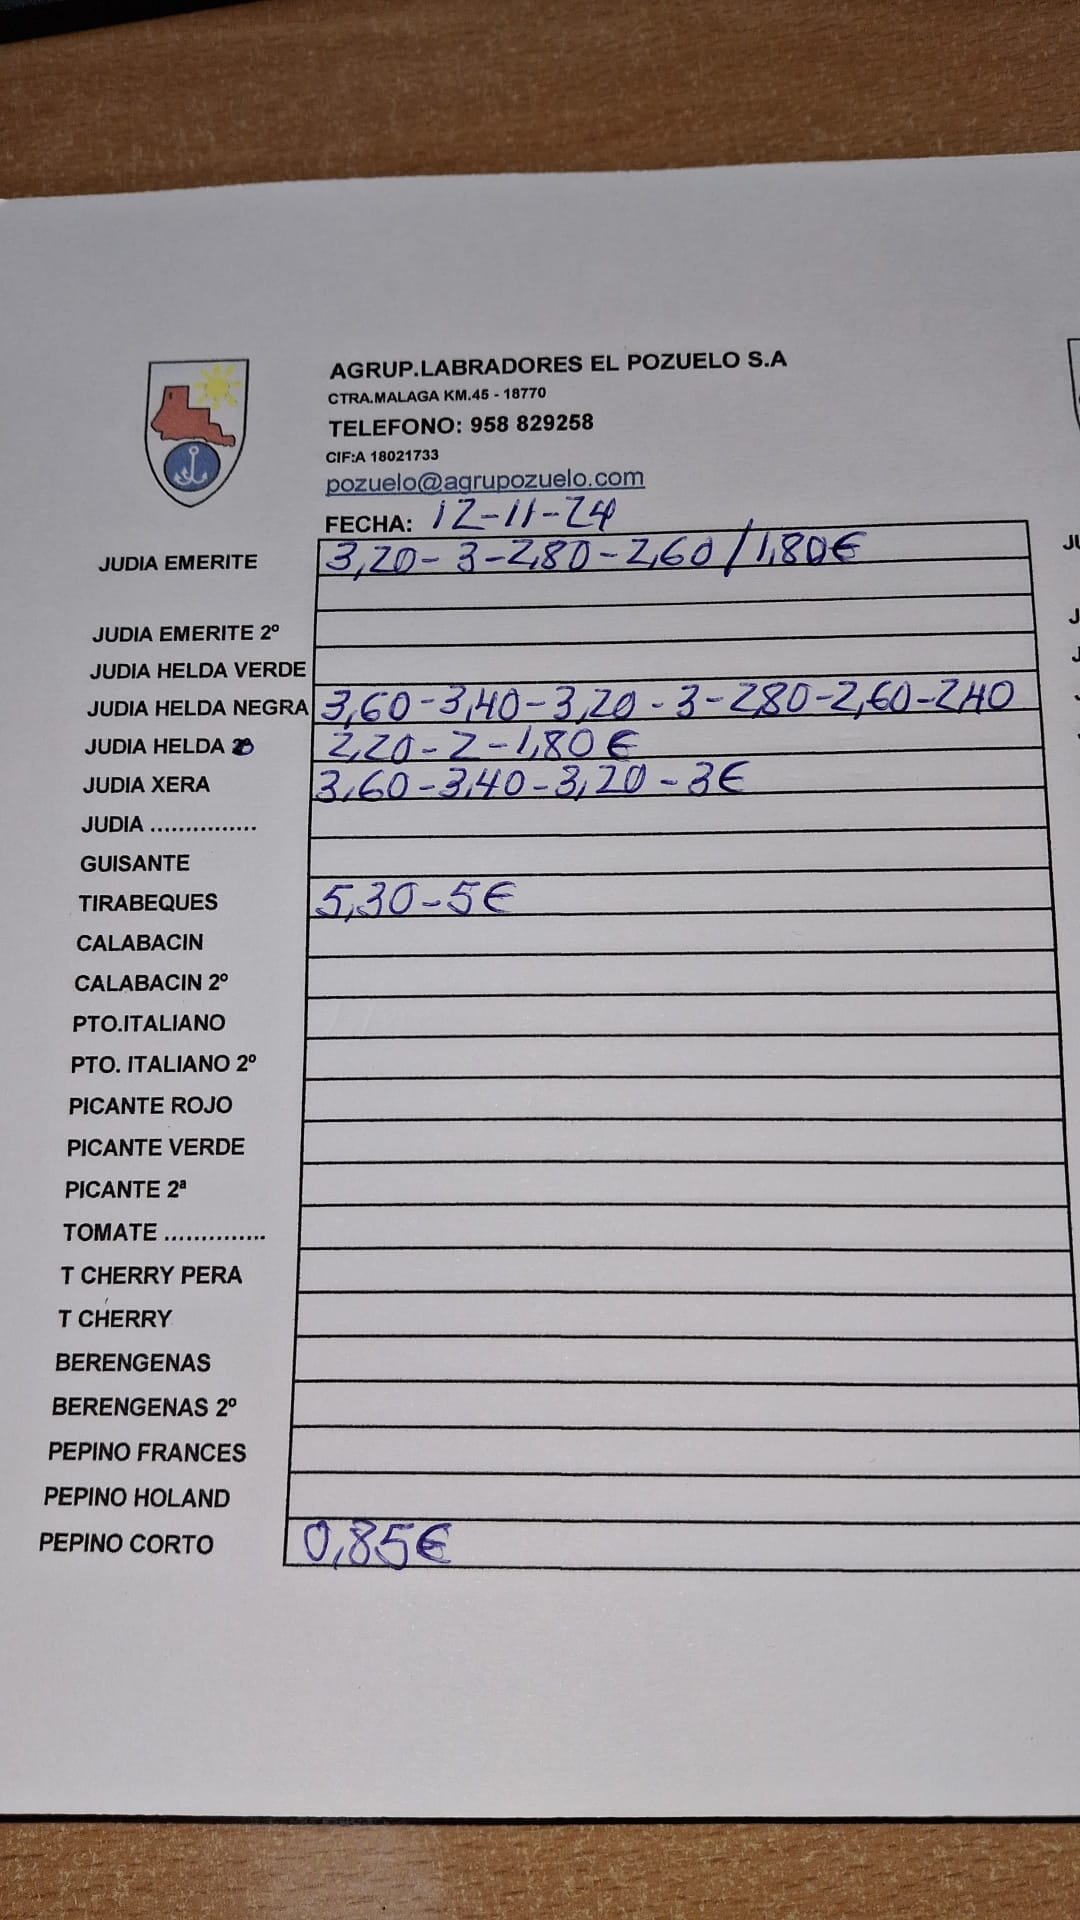 AGRUP.LABRADORES EL POZUELO S.A
CTRA.MALAGA KM.45 - 18770
TELEFONO: 958 829258
CIF:A 18021733
pozuelo@agrupozuelo.com
FECHA: 12-11-24
JUDIA EMERITE 3,20-3-2,80-2,60/1,80€
JUDIA EMERITE 2º
JUDIA HELDA VERDE
JUDIA HELDA NEGRA 3,60-3,40-3,20-3-2,80-2,60-2,40
JUDIA HELDA 2,20-2-1,80€
JUDIA XERA 3,60-3,40-3,20-3€
JUDIA ...............
GUISANTE
TIRABEQUES 5,30-5€
CALABACIN
CALABACIN 2º
PTO.ITALIANO
PTO. ITALIANO 2º
PICANTE ROJO
PICANTE VERDE
PICANTE 2ª
TOMATE ..............
T CHERRY PERA
T CHERRY
BERENGENAS
BERENGENAS 2º
PEPINO FRANCES
PEPINO HOLAND
PEPINO CORTO 0,85€